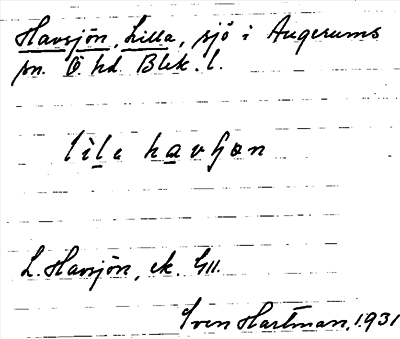 Havsjön, Lilla, sjö i Augerums
sn. Ö. hd. Blek. l.
lìlа havʃøn
L. Havsjön, ek. GII.
Sven Hartman, 1931